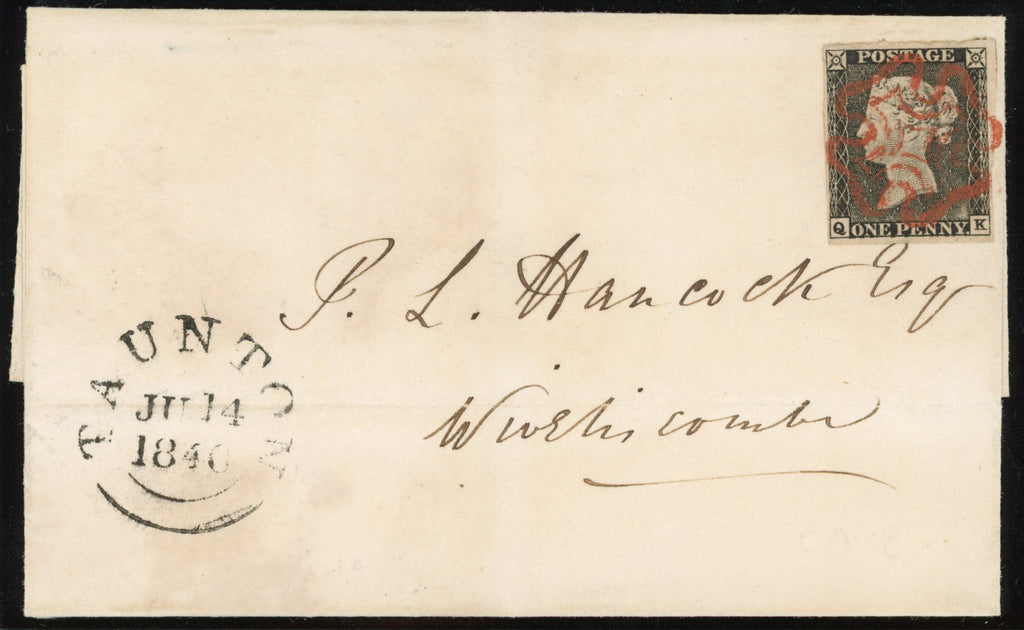 POSTAGE
Q ONE PENNY K
P. L. Hancock Esq
Wiveliscombe
TAUNTON
JU 14
1840